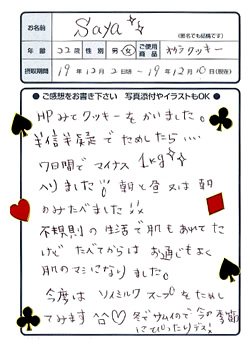 お名前 Saya
(匿名でも結構です)
年齢 22歳 性別 男・女 ご使用商品 クッキー
摂取期間 19年12月2日頃 ~ 19年12月10日(現在)
●ご感想をお書き下さい 写真添付やイラストもOK●
HPみてクッキーをかいました。
半信半疑でためしたら‥‥
7日間でマイナス1kg
へりました!! 朝と昼又は朝
のみたべました!!
不規則の生活で肌もあれてた
けど たべてからは お通じもよく
肌のマシになりました。
今度は ソイミルクスープをためし
てみます^^♡ 冬でサムイので今の季節
にぴったりデス!